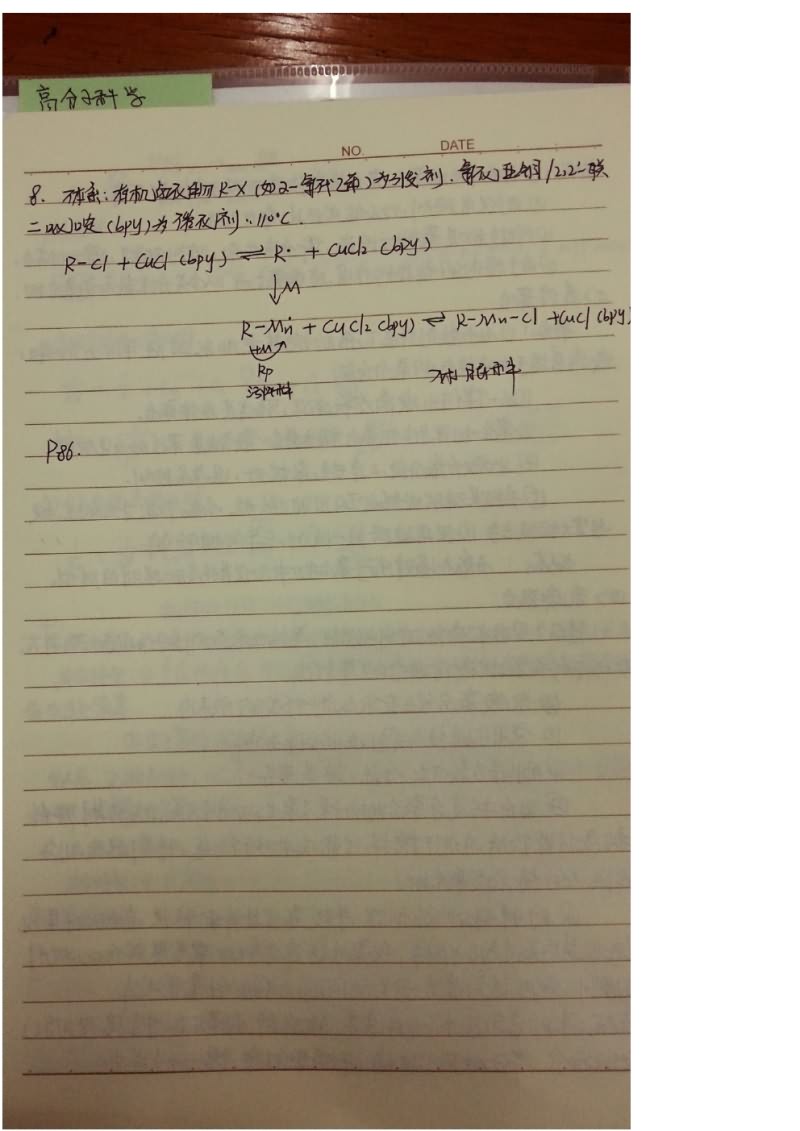 高分子科学
NO. DATE
8. 体系：有机卤化物 R-X (如2-氯代乙苯)为引发剂，氯化亚铜/2,2'-联
二吡啶 (bpy) 为催化剂，110℃.
R-Cl + CuCl (bpy) ⇌ R· + CuCl2 (bpy)
↓M
R-Mn· + CuCl2 (bpy) ⇌ R-Mn-Cl + CuCl (bpy)
+M
Rp
活性种 休眠种
P86.